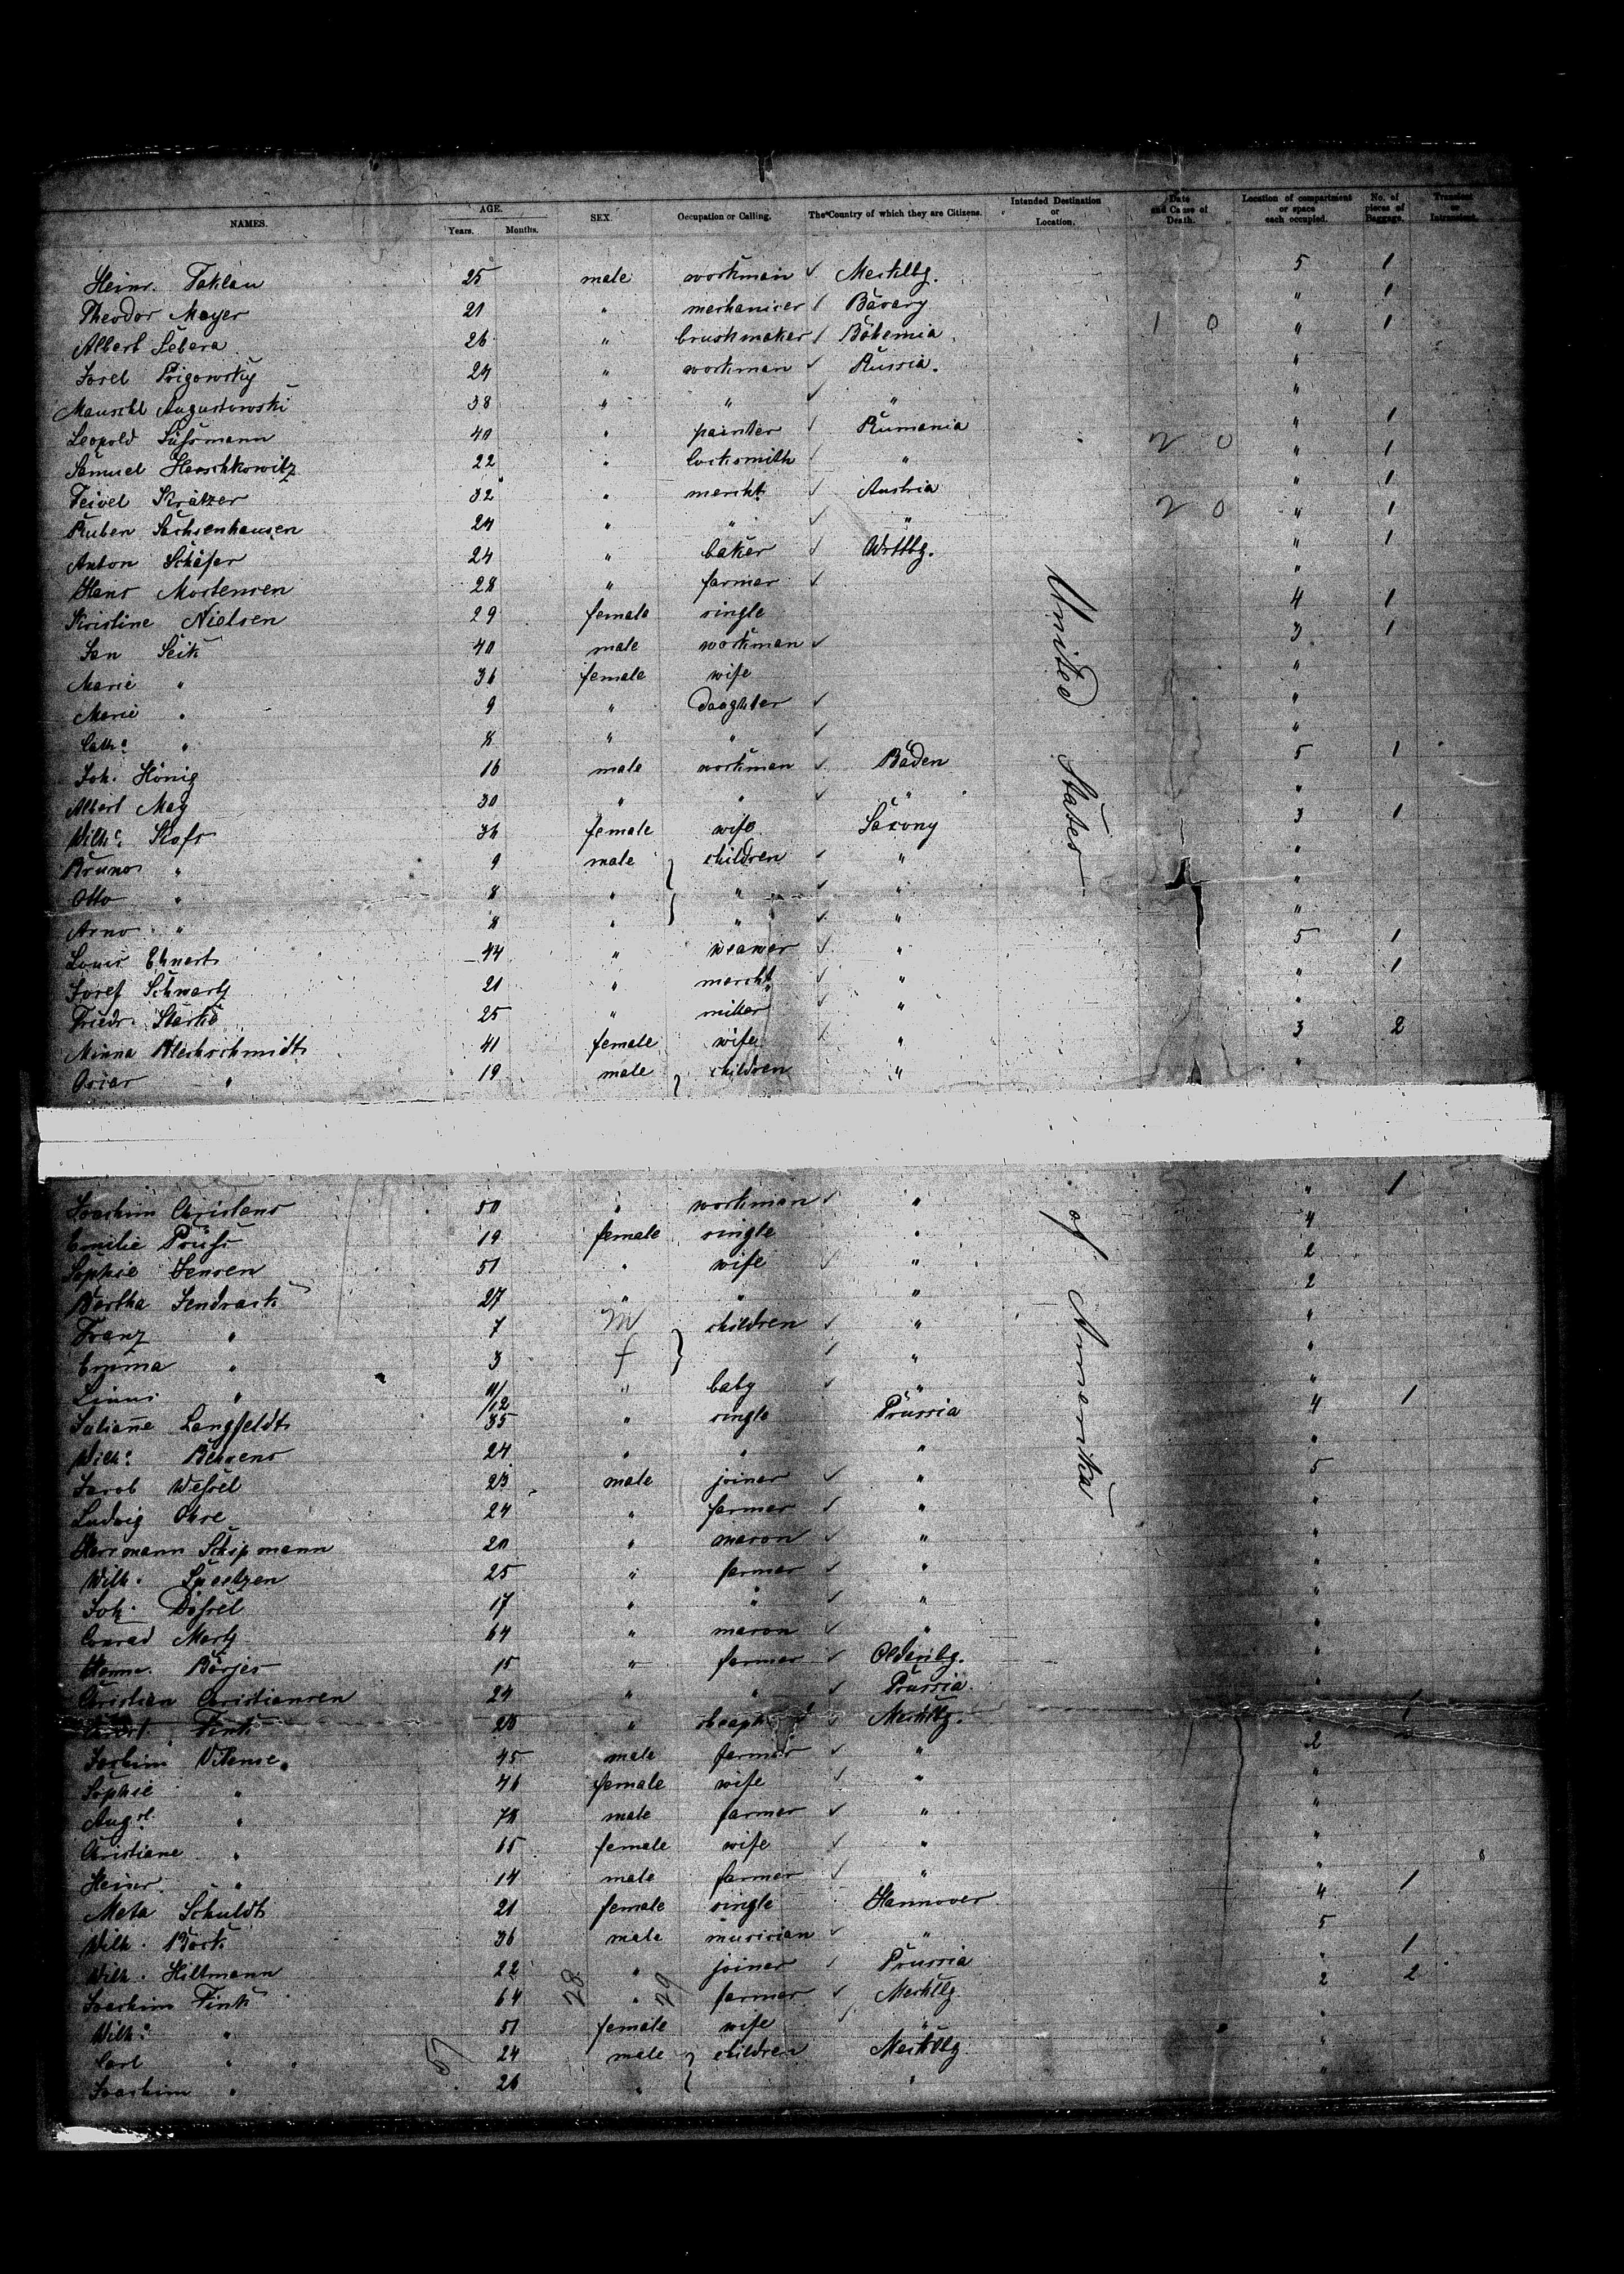 NAMES. AGE. Years. Months. SEX. Occupation or Calling. The Country of which they are Citizens. Intended Destination or Location. Date and Cause of Death. Location of compartment or space each occupied. No. of pieces of Baggage. Transient or Intransient.
Heinr. Taklau 25 male workman ✓ Mecklbg. 5 1
Theodor Mayer 21 " mechanicer ✓ Bavary " 1
Albert Sebera 26 " brushmaker ✓ Bohemia 1 0 " 1
Josel Prigowsky 24 " workman ✓ Russia. "
Mauschl Augustowski 38 " " ✓ " "
Leopold Süssmann 40 " painter ✓ Rumania " 1
Samuel Herschkowitz 22 " locksmith ✓ " 2 0 " 1
Feivel Krätzer 32 " mercht. ✓ Austria " 1
Ruben Sachsenhausen 24 " " ✓ " 2 0 " 1
Anton Schäfer 24 " baker ✓ Wrttbg. " 1
Hans Mortensen 28 " farmer ✓ "
Kristine Nielsen 29 female single 4 1
Jan Seik 40 male workman ✓ 3 1
Marie " 36 female wife "
Marie " 9 " daughter ✓ "
Cathe " 8 " " ✓ "
Joh. König 16 male workman ✓ Baden 5 1
Albert May 30 " " ✓ " "
Wilhe. 36 female wife Saxony 3 1
Bruno " 9 male children ✓ " "
Otto " 8 " " ✓ " "
Arno " " " ✓ " "
Louis Ehnert 44 " weawer ✓ " 5 1
Josef Schwartz 21 " mercht. ✓ " " 1
Friedr. Starke 25 " miller ✓ " "
Minna Blechschmidt 41 female wife ✓ " 3 2
Oscar " 19 male children " "
United States of Amerika
Joachim Christens 50 " workman ✓ " " 1
Emilie 19 female single " 4
Sophie Jensen 51 " wife ✓ " 2
Bertha Jendrack 27 " " " 2
Franz " 7 M children ✓ " "
Emma " 3 f ✓ " "
" 11/12 " baby ✓ " "
Juliane Langfeldt 35 " single Prussia 4 1
Wilhe. Behrens 24 " " " "
Jacob Wessel 23 male joiner ✓ " 5
Ludwig Ohre 24 " farmer ✓ " "
Herrmann Schipmann 20 " mason ✓ " "
Wilh. 25 " farmer ✓ " "
Joh. Dössel 17 " " ✓ " "
Conrad Mertz 64 " mason ✓ " "
Herm. Börjes 15 " farmer ✓ Oldenbg. "
Christian Christiansen 24 " " ✓ Prussia "
Fink " ✓ Mecklbg. " 1
Joachim Vitense. 45 male farmer ✓ " 2
Sophie " 46 female wife ✓ " "
Augst. " male farmer ✓ " "
Christiane " 15 female wife ✓ " "
Heinr. " 14 male farmer ✓ " "
Meta Schuldt 21 female single Hannover 4 1
Wilh. Bock 36 male musician ✓ " 5
Wilh. Hillmann 22 " joiner ✓ Prussia " 1
Joachim Fink 64 " farmer ✓ Mecklbg 2 2
Wilhe. " 51 female wife ✓ " "
Carl " 24 male children Mecklbg "
Joachim " 26 " " "
57 28 29